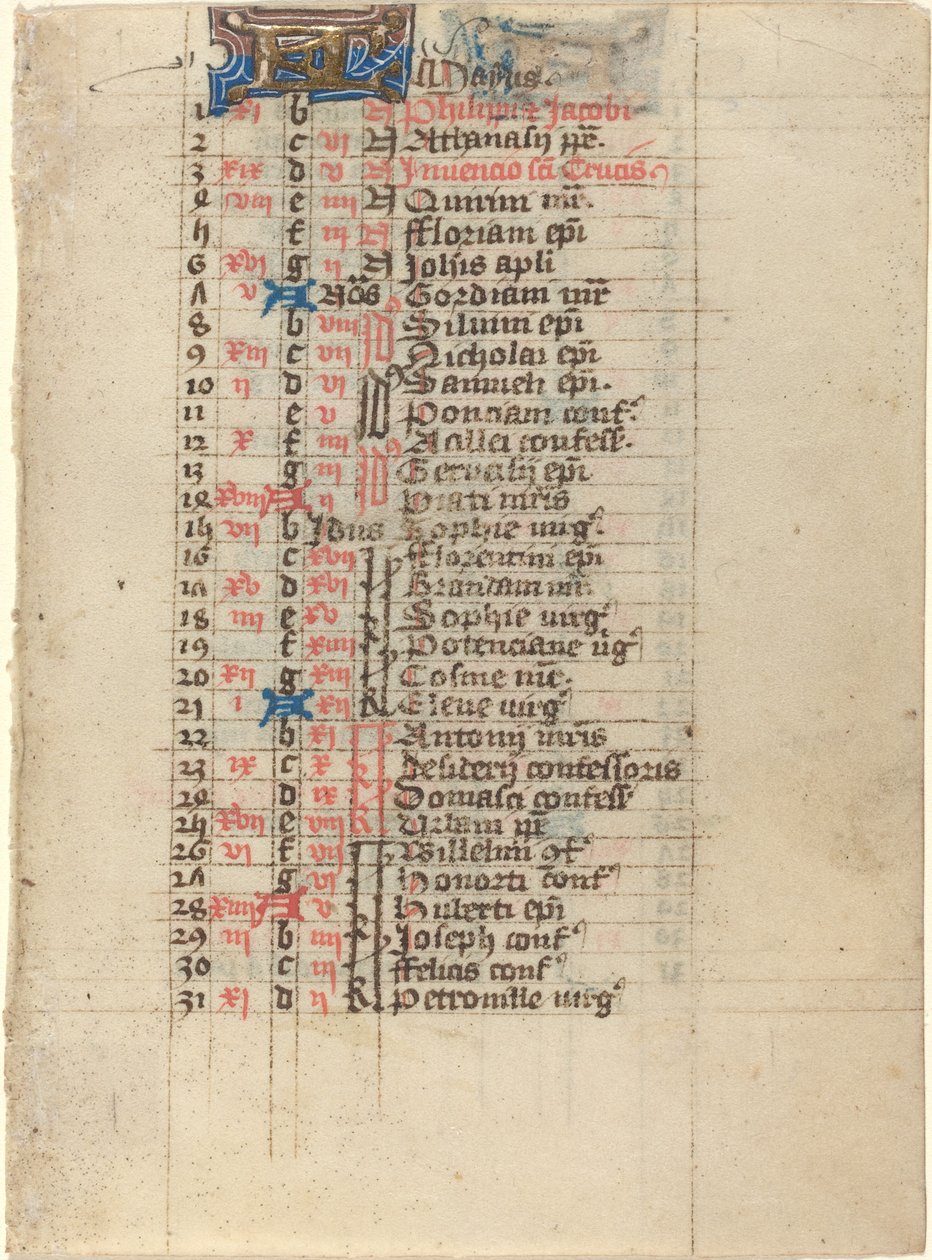 KL Maius
1 xi b A Philippi et Jacobi
2 c vi A Athanasij pp̄e.
3 xix d v A Invencio sc̄i Crucis
4 viii e iiii A Quirini mr̄.
5 f iii A ffloriani epī
6 xvi g ii A Joh̄is apli
7 v A Nōs Gordiani mr̄
8 b viii Id9 Siluini epī
9 xiii c vii Nicholai epī
10 ii d vi Id9 Samueli epī.
11 e v Ponciani conf9
12 x f iiii Acillei confess.
13 g iii Id9 Gervasij epī
14 xviii A ii viati mr̄is
15 vii b Idus Sophie uirg9
16 c xvii fflorentini epī
17 xv d xvi Brandani mr̄.
18 iiii e xv Sophie uirg9
19 f xiiii Potenciane ūg9
20 xii g xiii Cosme mr̄.
21 i A xii Elene uirg9
22 b xi Antonij mr̄is
23 ix c x Desiderij confessoris
24 d ix Domasci confess
25 xvii e viii Urbani pp̄e
26 vi f vii Willelmi 9f9
27 g vi Honorti conf9
28 xiiii A v Huberti epī
29 iii b iiii Joseph conf9
30 c iii ffelicis conf9
31 xi d ii Petronille uirg9